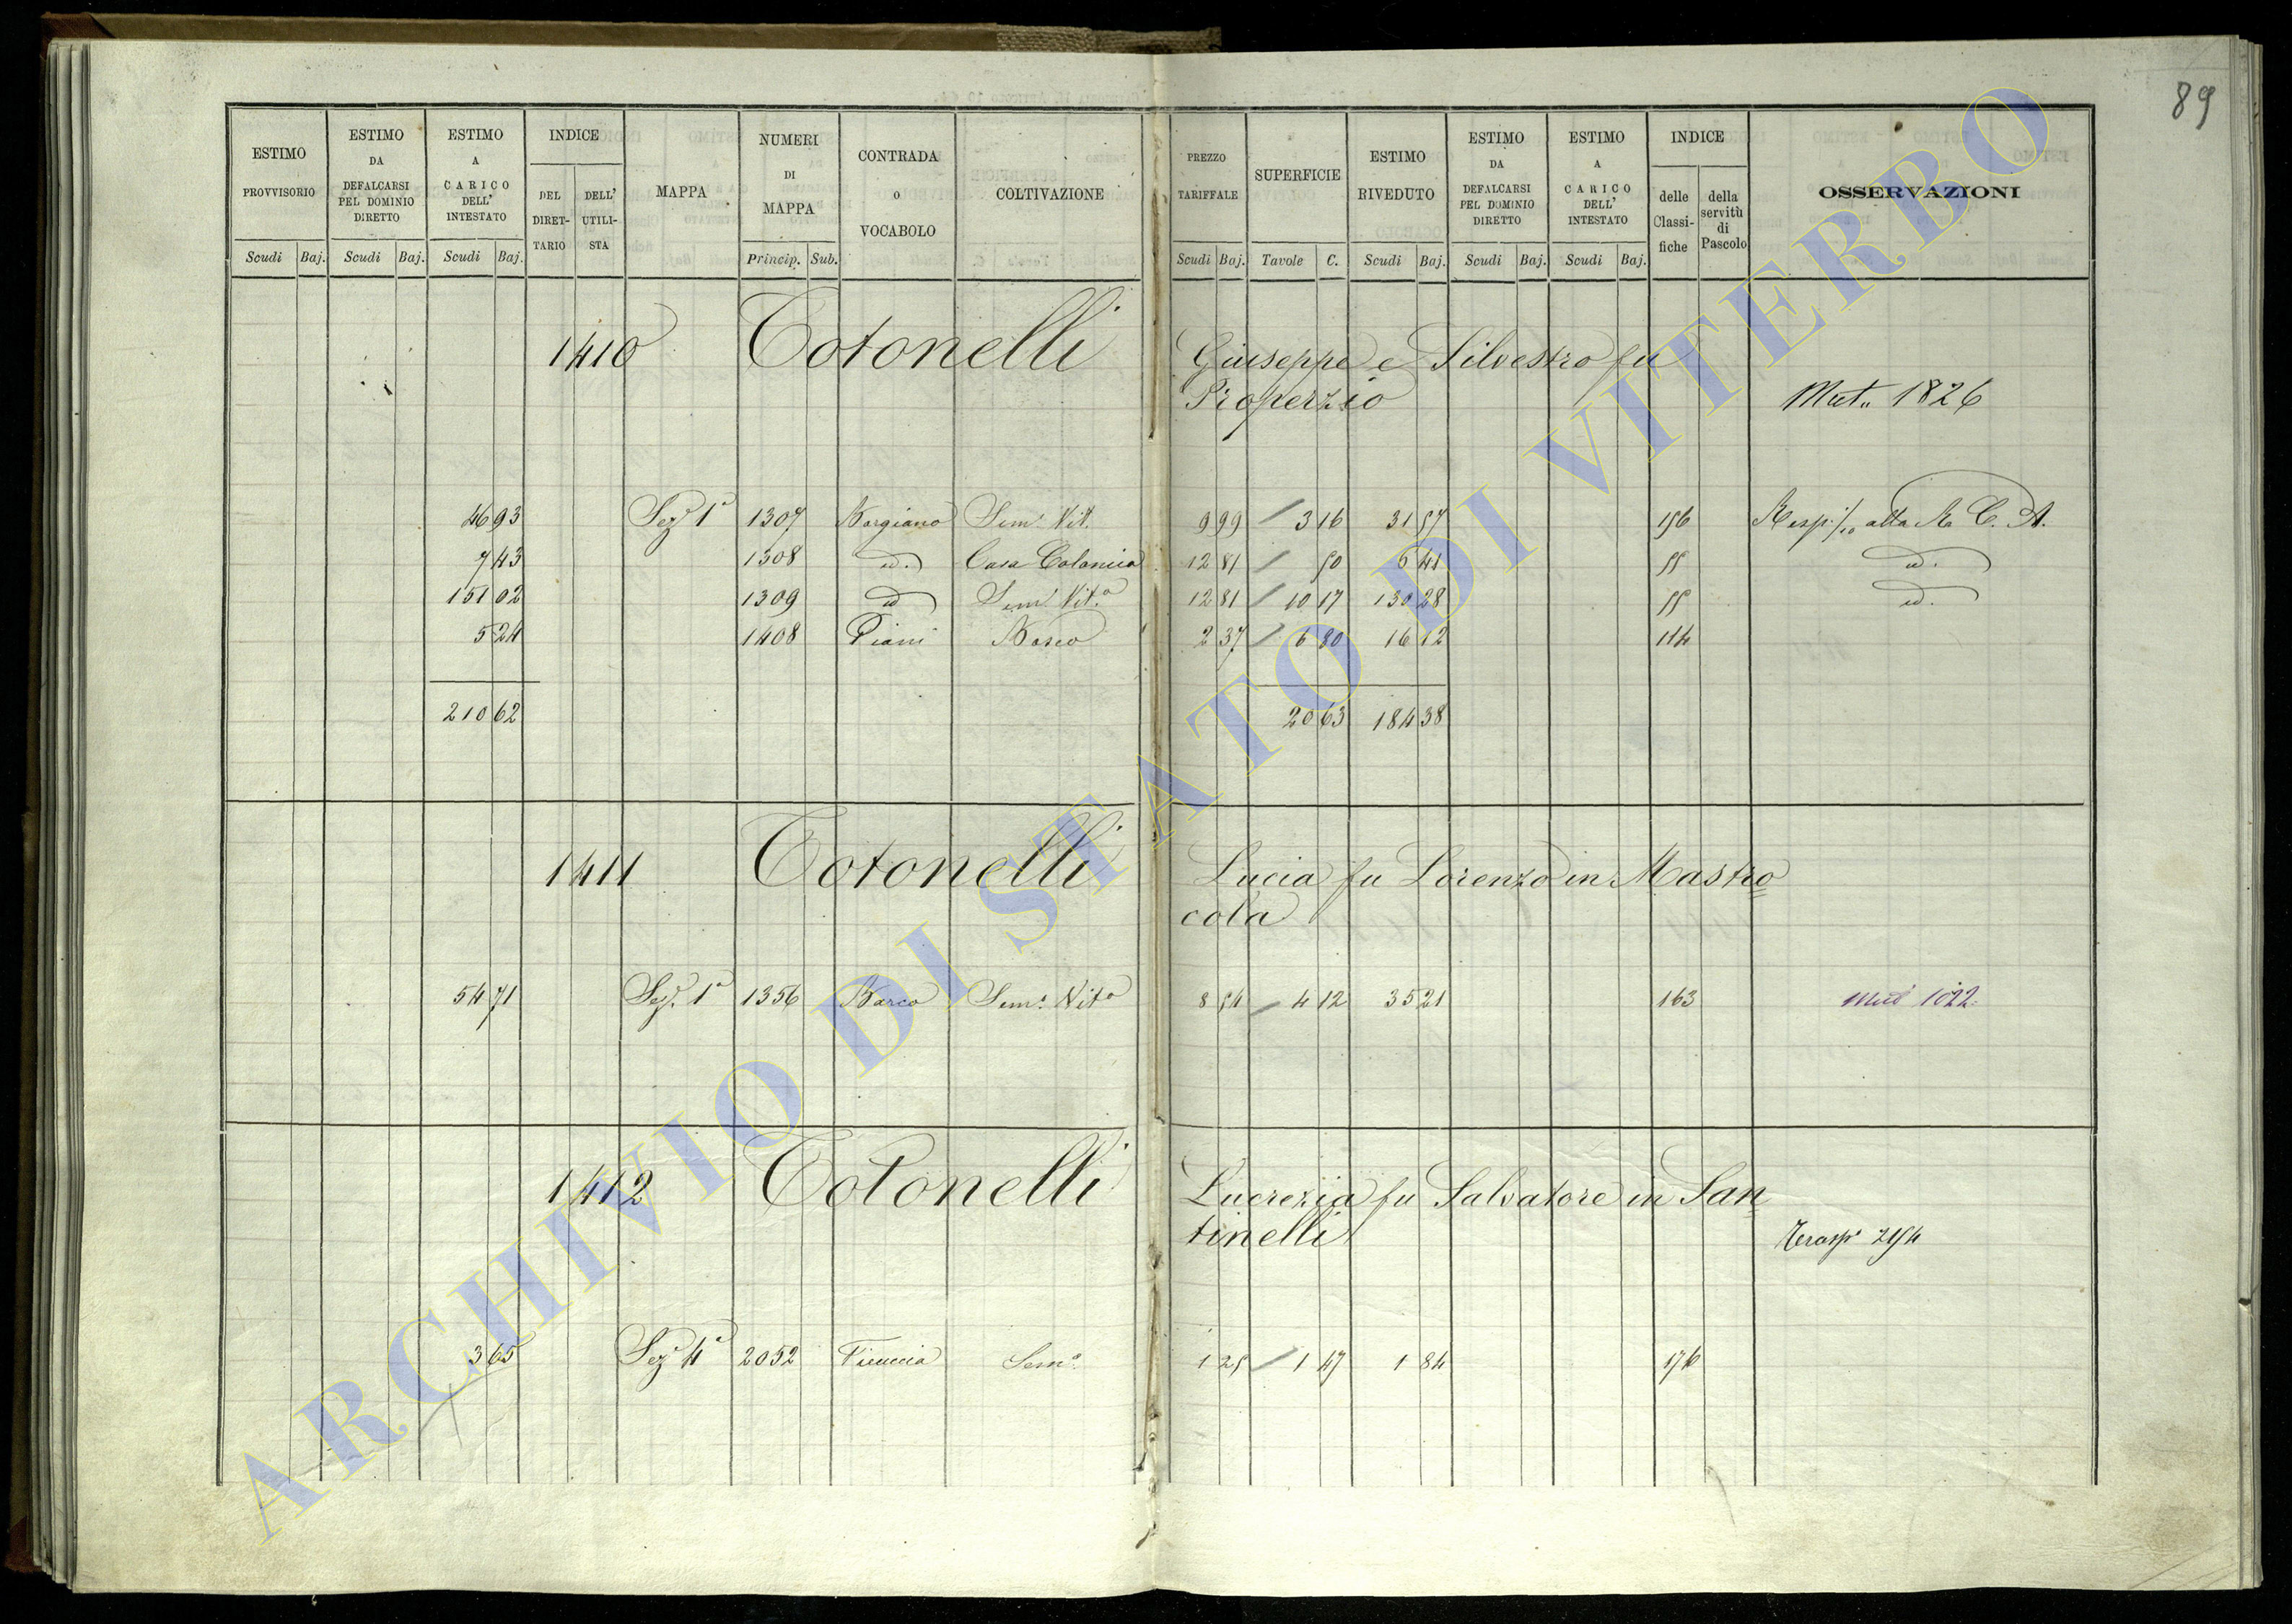 89
ESTIMO PROVVISORIO Scudi Baj.
ESTIMO DA DEFALCARSI PEL DOMINIO DIRETTO Scudi Baj.
ESTIMO A CARICO DELL' INTESTATO Scudi Baj.
INDICE DEL DIRET-TARIO DELL' UTILI-STA
MAPPA
NUMERI DI MAPPA Princip. Sub.
CONTRADA o VOCABOLO
COLTIVAZIONE
PREZZO TARIFFALE Scudi Baj.
SUPERFICIE Tavole C.
ESTIMO RIVEDUTO Scudi Baj.
ESTIMO DA DEFALCARSI PEL DOMINIO DIRETTO Scudi Baj.
ESTIMO A CARICO DELL' INTESTATO Scudi Baj.
INDICE delle Classi-fiche della servitù di Pascolo
OSSERVAZIONI
1410 Totonelli Giuseppe e Silvestro fu
Properzio
Mut. 1826
46 93 Sez. 1a 1307 Borgiano Sem. Vit. 9 99 3 16 31 57 156 Resp. alla R. C. A.
7 43 1308 id. Casa Colonica 12 81 50 6 41 55 id.
151 02 1309 id Sem. Vit.o 12 81 10 17 130 28 55 id.
5 24 1408 Piani Bosco 2 37 6 80 16 12 114
210 62 20 63 184 38
1411 Totonelli Lucia fu Lorenzo in Mastro
cola
54 71 Sez. 1a 1356 Barco Sem. Vit.o 8 54 4 12 35 21 163
1412 Totonelli Lucrezia fu Salvatore in San
tinelli
Trasp.
3 65 Sez. 4a 2052 Ficuccia Sem.o 1 25 1 47 1 84 176
ARCHIVIO DI STATO DI VITERBO